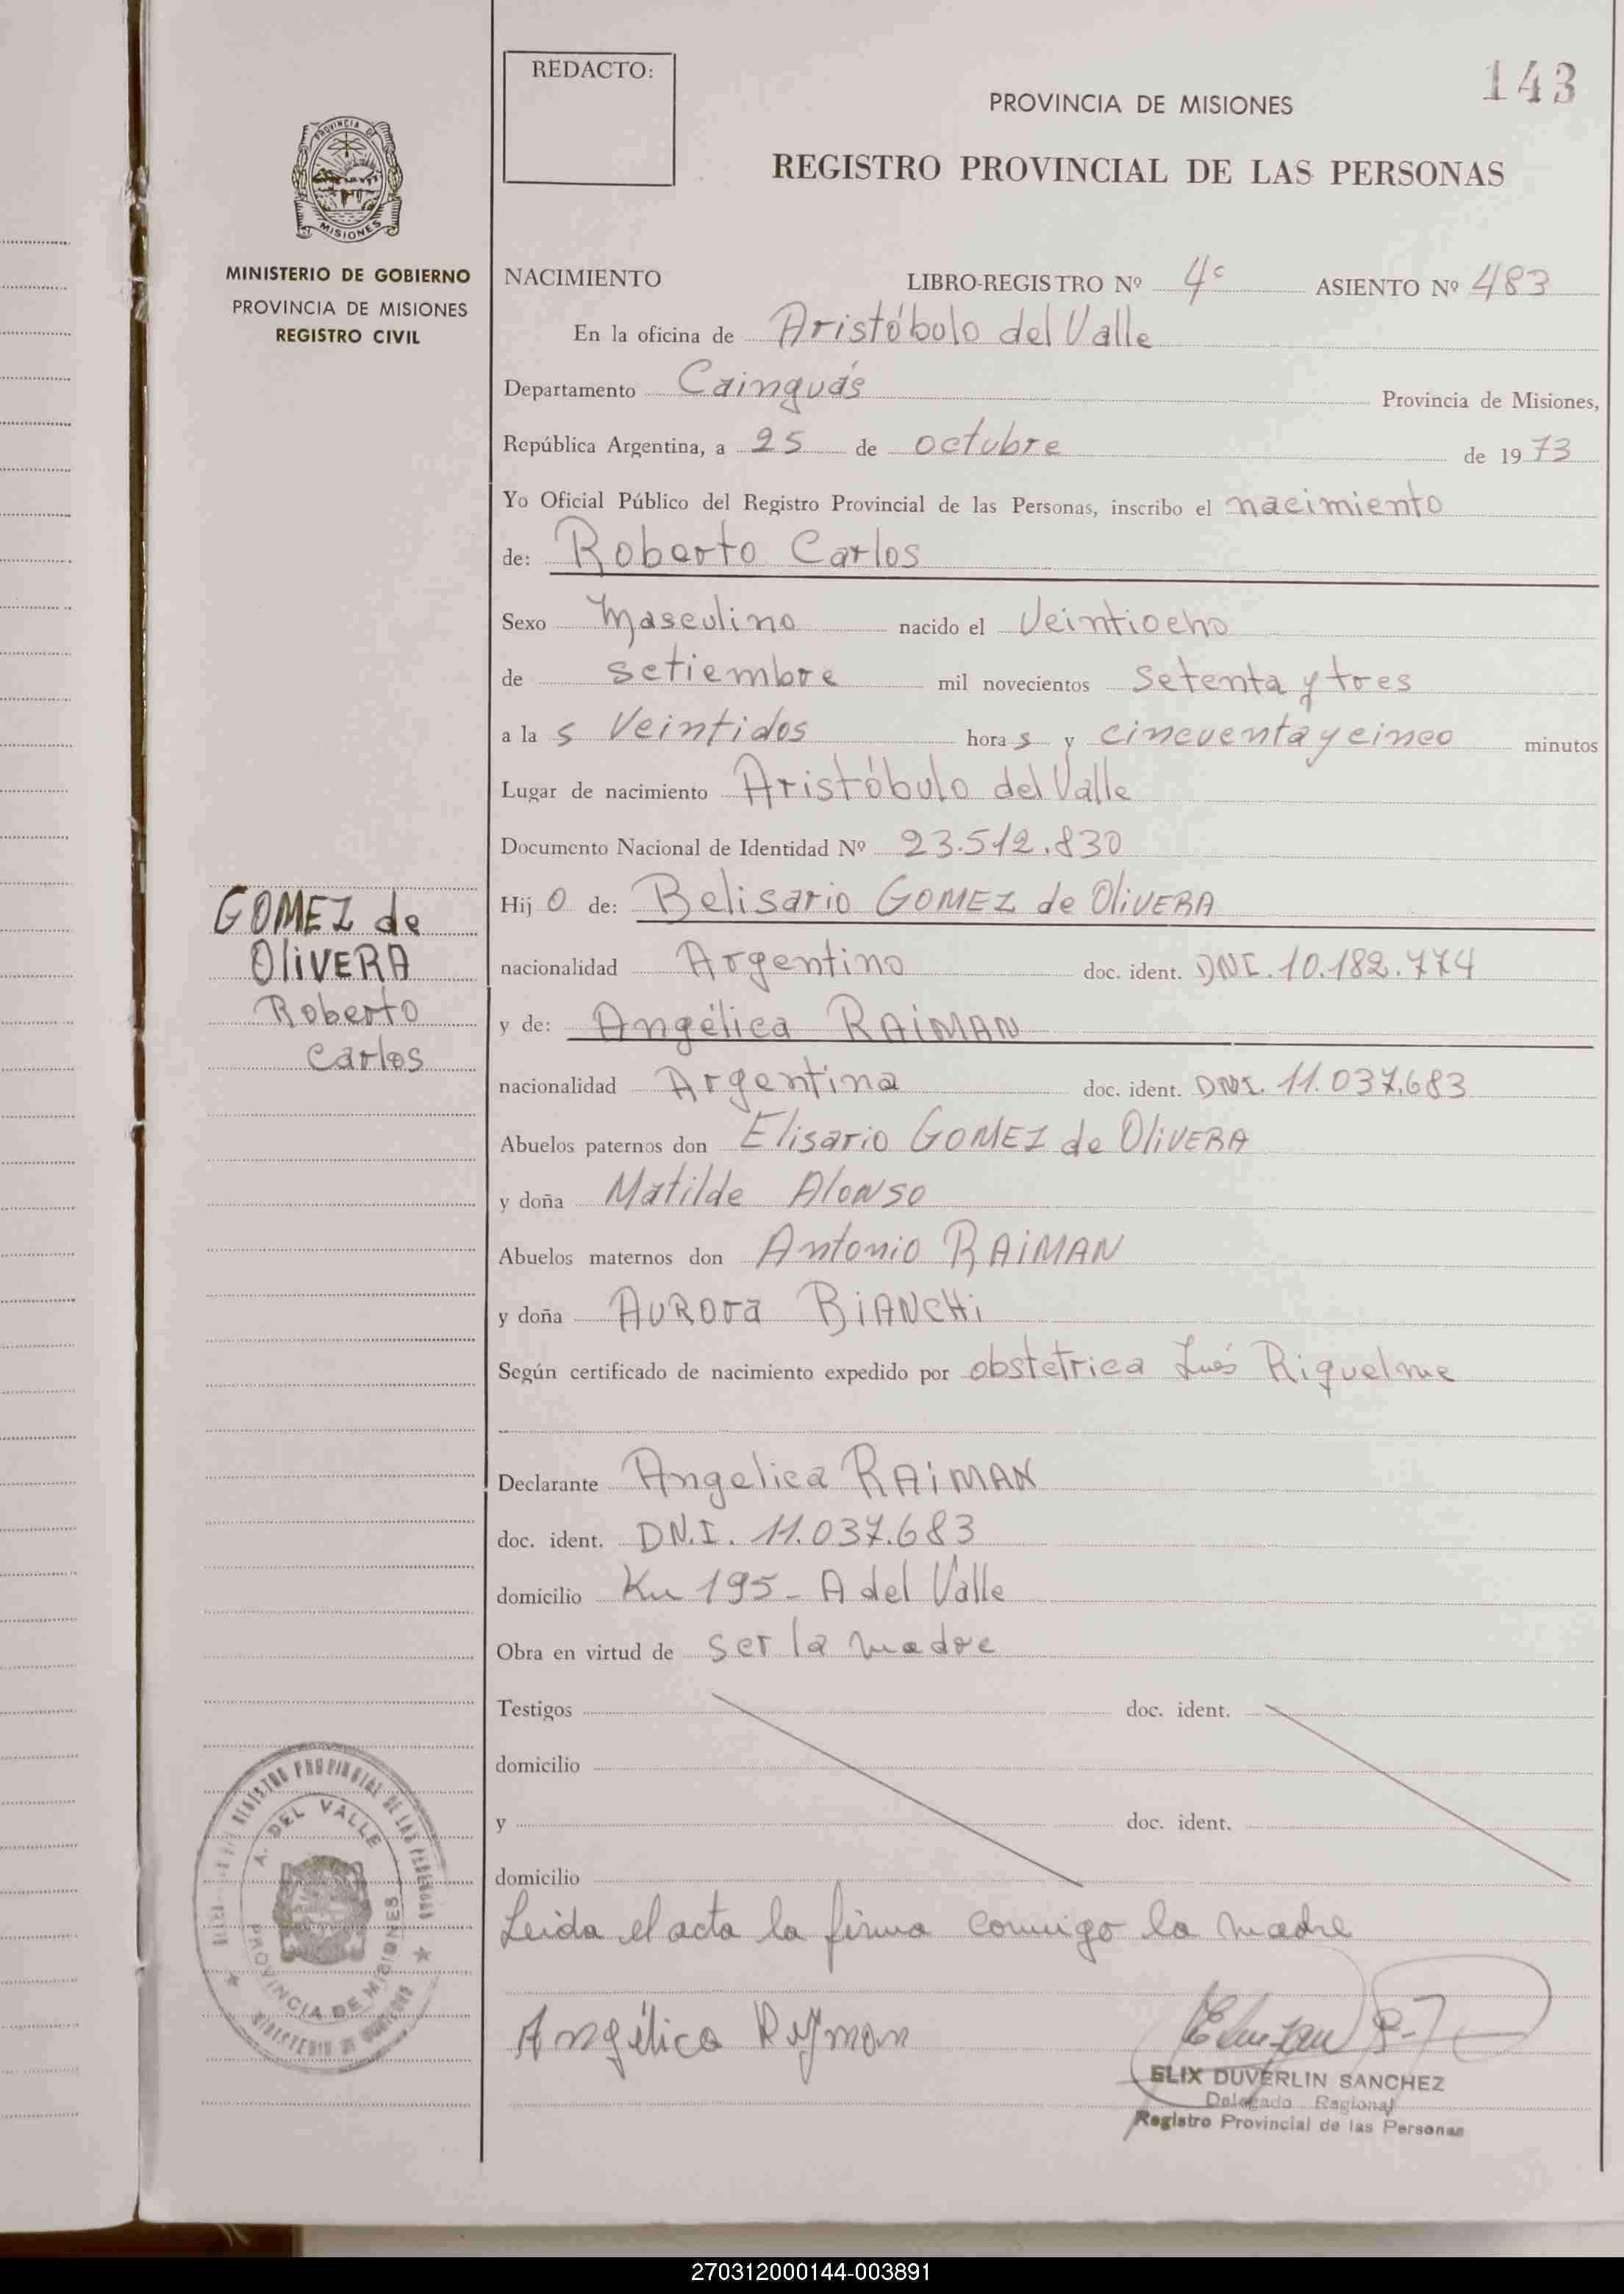 REDACTO:
143
PROVINCIA DE MISIONES
REGISTRO PROVINCIAL DE LAS PERSONAS
PROVINCIA DE
MISIONES
MINISTERIO DE GOBIERNO
PROVINCIA DE MISIONES
REGISTRO CIVIL
NACIMIENTO LIBRO-REGISTRO Nº 4º ASIENTO Nº 483
En la oficina de Aristóbulo del Valle
Departamento Cainguás Provincia de Misiones,
República Argentina, a 25 de octubre de 1973
Yo Oficial Público del Registro Provincial de las Personas, inscribo el nacimiento
de: Roberto Carlos
Sexo Masculino nacido el Veintiocho
de setiembre mil novecientos setenta y tres
a la s Veintidos hora s y cincuenta y cinco minutos
Lugar de nacimiento Aristóbulo del Valle
Documento Nacional de Identidad Nº 23.512.830
Hij o de: Belisario GOMEZ de OliVERA
nacionalidad Argentino doc. ident. DNI. 10.182.774
y de: Angélica RAiMAN
nacionalidad Argentina doc. ident. DNI. 11.037.683
Abuelos paternos don Elisario GOMEZ de OliVERA
y doña Matilde Alonso
Abuelos maternos don Antonio RAiMAN
y doña AURORA BiANCHi
Según certificado de nacimiento expedido por obstetrica Inés Riquelme
Declarante Angelica RAiMAN
doc. ident. DN.I. 11.037.683
domicilio Km 195 - A del Valle
Obra en virtud de ser la madre
Testigos doc. ident.
domicilio
y doc. ident.
domicilio
Leida el acta la firma conmigo la madre
Angélica Rayman
ELIX DUVERLIN SANCHEZ
Delegado Regional
Registro Provincial de las Personas
GOMEZ de
OliVERA
Roberto
Carlos
REGISTRO PROVINCIAL DE LAS PERSONAS
A. DEL VALLE
PROVINCIA DE MISIONES
MINISTERIO DE GOBIERNO
270312000144-003891